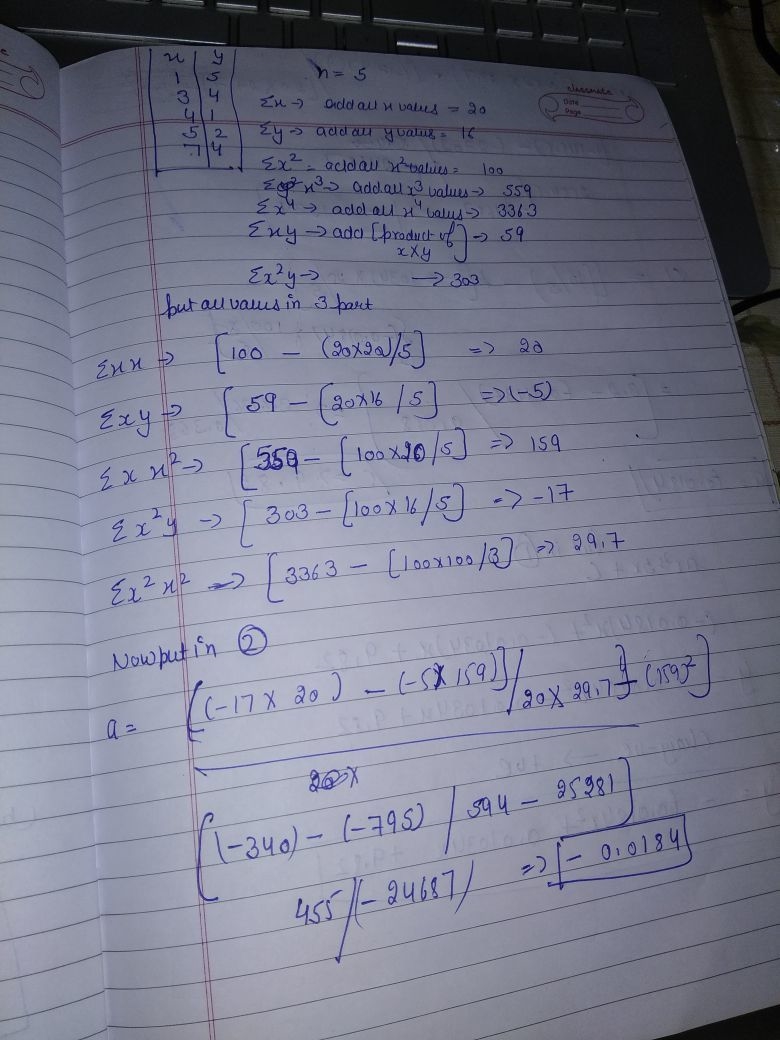 x | y
1 | 5
3 | 4
4 | 1
5 | 2
7 | 4
n = 5
classmate
Date
Page
Σx → add all x values = 20
Σy → add all y values = 16
Σx² = add all x² values = 100
Σx³ → add all x³ values → 559
Σx⁴ → add all x⁴ values → 3363
Σxy → add [product of x×y] → 59
Σx²y → → 303
put all values in 3 part
Σxx → [100 - (20×20)/5] => 20
Σxy → [59 - [20×16/5] => (-5)
Σxx² → [559 - [100×20/5] => 159
Σx²y → [303 - [100×16/5] => -17
Σx²x² → [3363 - [100×100/3] => 29.7
Now put in ②
a = [(-17 × 20) - (-5 × 159)] / 20 × 29.7] - (159)²]
[(-340) - (-795) / 594 - 25281]
455/(-24687) => [-0.0184]